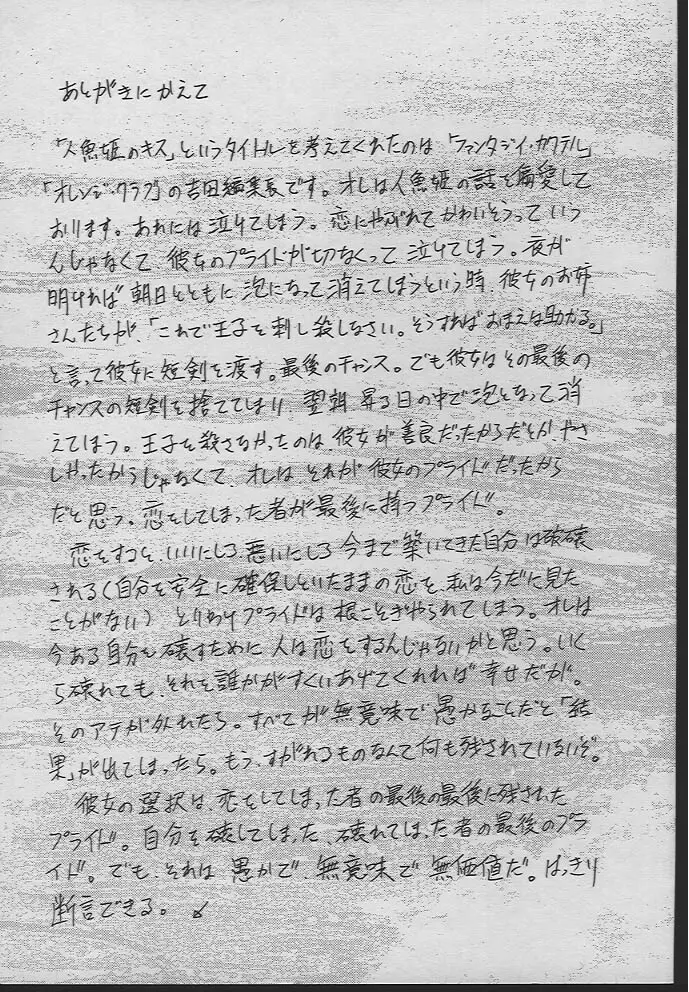 あとがきにかえて
「人魚姫のキス」というタイトルを考えてくれたのは「ファンタジイ・カクテル」
「オレンジ・クラブ」の吉田編集長です。オレは人魚姫の話を偏愛して
おります。あれには泣けてしまう。恋にやぶれてかわいそうっていう
んじゃなくて、彼女のプライドが切なくって泣けてしまう。夜が
明ければ朝日とともに泡になって消えてしまうという時、彼女のお姉
さんたちが、「これで王子を刺し殺しなさい。そうすればおまえは助かる。」
と言って彼女に短剣を渡す。最後のチャンス。でも彼女はその最後の
チャンスの短剣を捨ててしまい、翌朝、昇る日の中で泡となって消
えてしまう。王子を殺さなかったのは、彼女が善良だったからだとか、やさ
しかったからじゃなくて、オレは、それが彼女のプライドだったから
だと思う。恋をしてしまった者が最後に持つプライド。
恋をすると、いいにしろ悪いにしろ今まで築いてきた自分は破壊
される(自分を安全に確保しといたままの恋を、私は今だに見た
ことがない) とりわけプライドは根こそぎやられてしまう。オレは
今ある自分を壊すために人は恋をするんじゃないかと思う。いく
ら壊れても、それを誰かがすくいあげてくれれば幸せだが。
そのアテが外れたら。すべてが無意味で愚かなことだと「結
果」が出てしまったら。もう、すがれるものなんて何も残されていないぞ。
彼女の選択は、恋をしてしまった者の最後の最後に残された
プライド。自分を壊してしまった、壊れてしまった者の最後のプラ
イド。でも、それは愚かで、無意味で無価値だ。はっきり
断言できる。